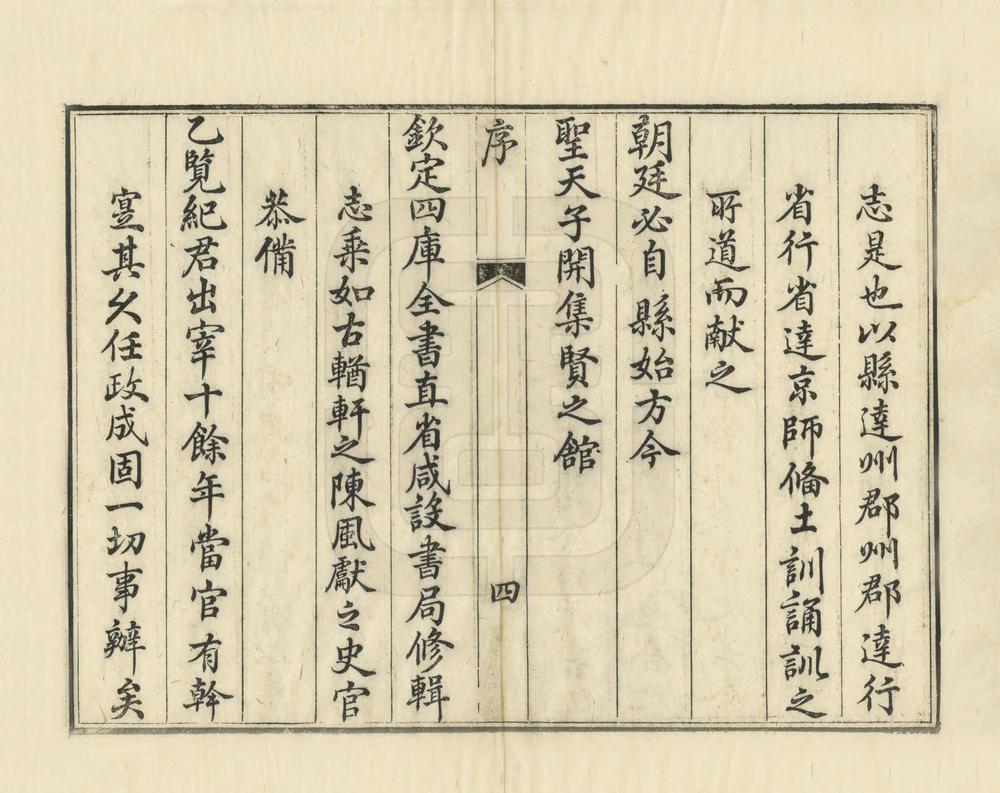 志是也以縣達州郡州郡達行
省行省達京師偹土訓誦訓之
所道而献之
朝廷必自縣始方今
聖天子開集賢之舘
序
四
欽定四庫全書直省咸設書局修輯
志乗如古輶軒之陳風獻之史官
恭備
乙覧紀君出宰十餘年當官有幹
寔其久任政成固一切事辦矣